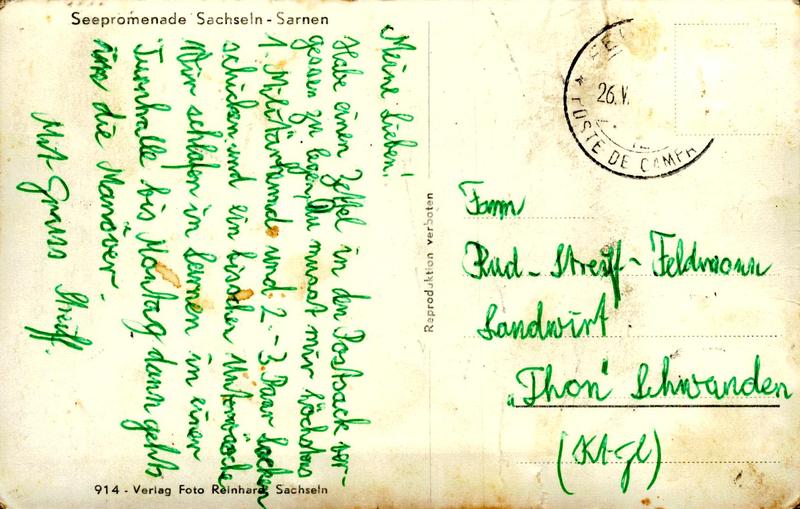 Seepromenade Sachseln - Sarnen
Meine Lieben!
Habe einen Zettel in den Postsack ver-
gessen zu legen, Du musst mir höchstens
1. Militärhemd und 2.-3. Paar Socken
schicken und ein bisschen Unterwäsche
Wir schlafen in Sarnen in einer
Turnhalle bis Montag dann gehts
in die Manöver.
Mit Gruss Streiff.
914 - Verlag Foto Reinhard, Sachseln
Reproduktion verboten
26.V.
POSTE DE CAMPA
Fam
Rud - Streiff - Feldmann
Landwirt
„Thon" Schwanden
(Kt-Gl)